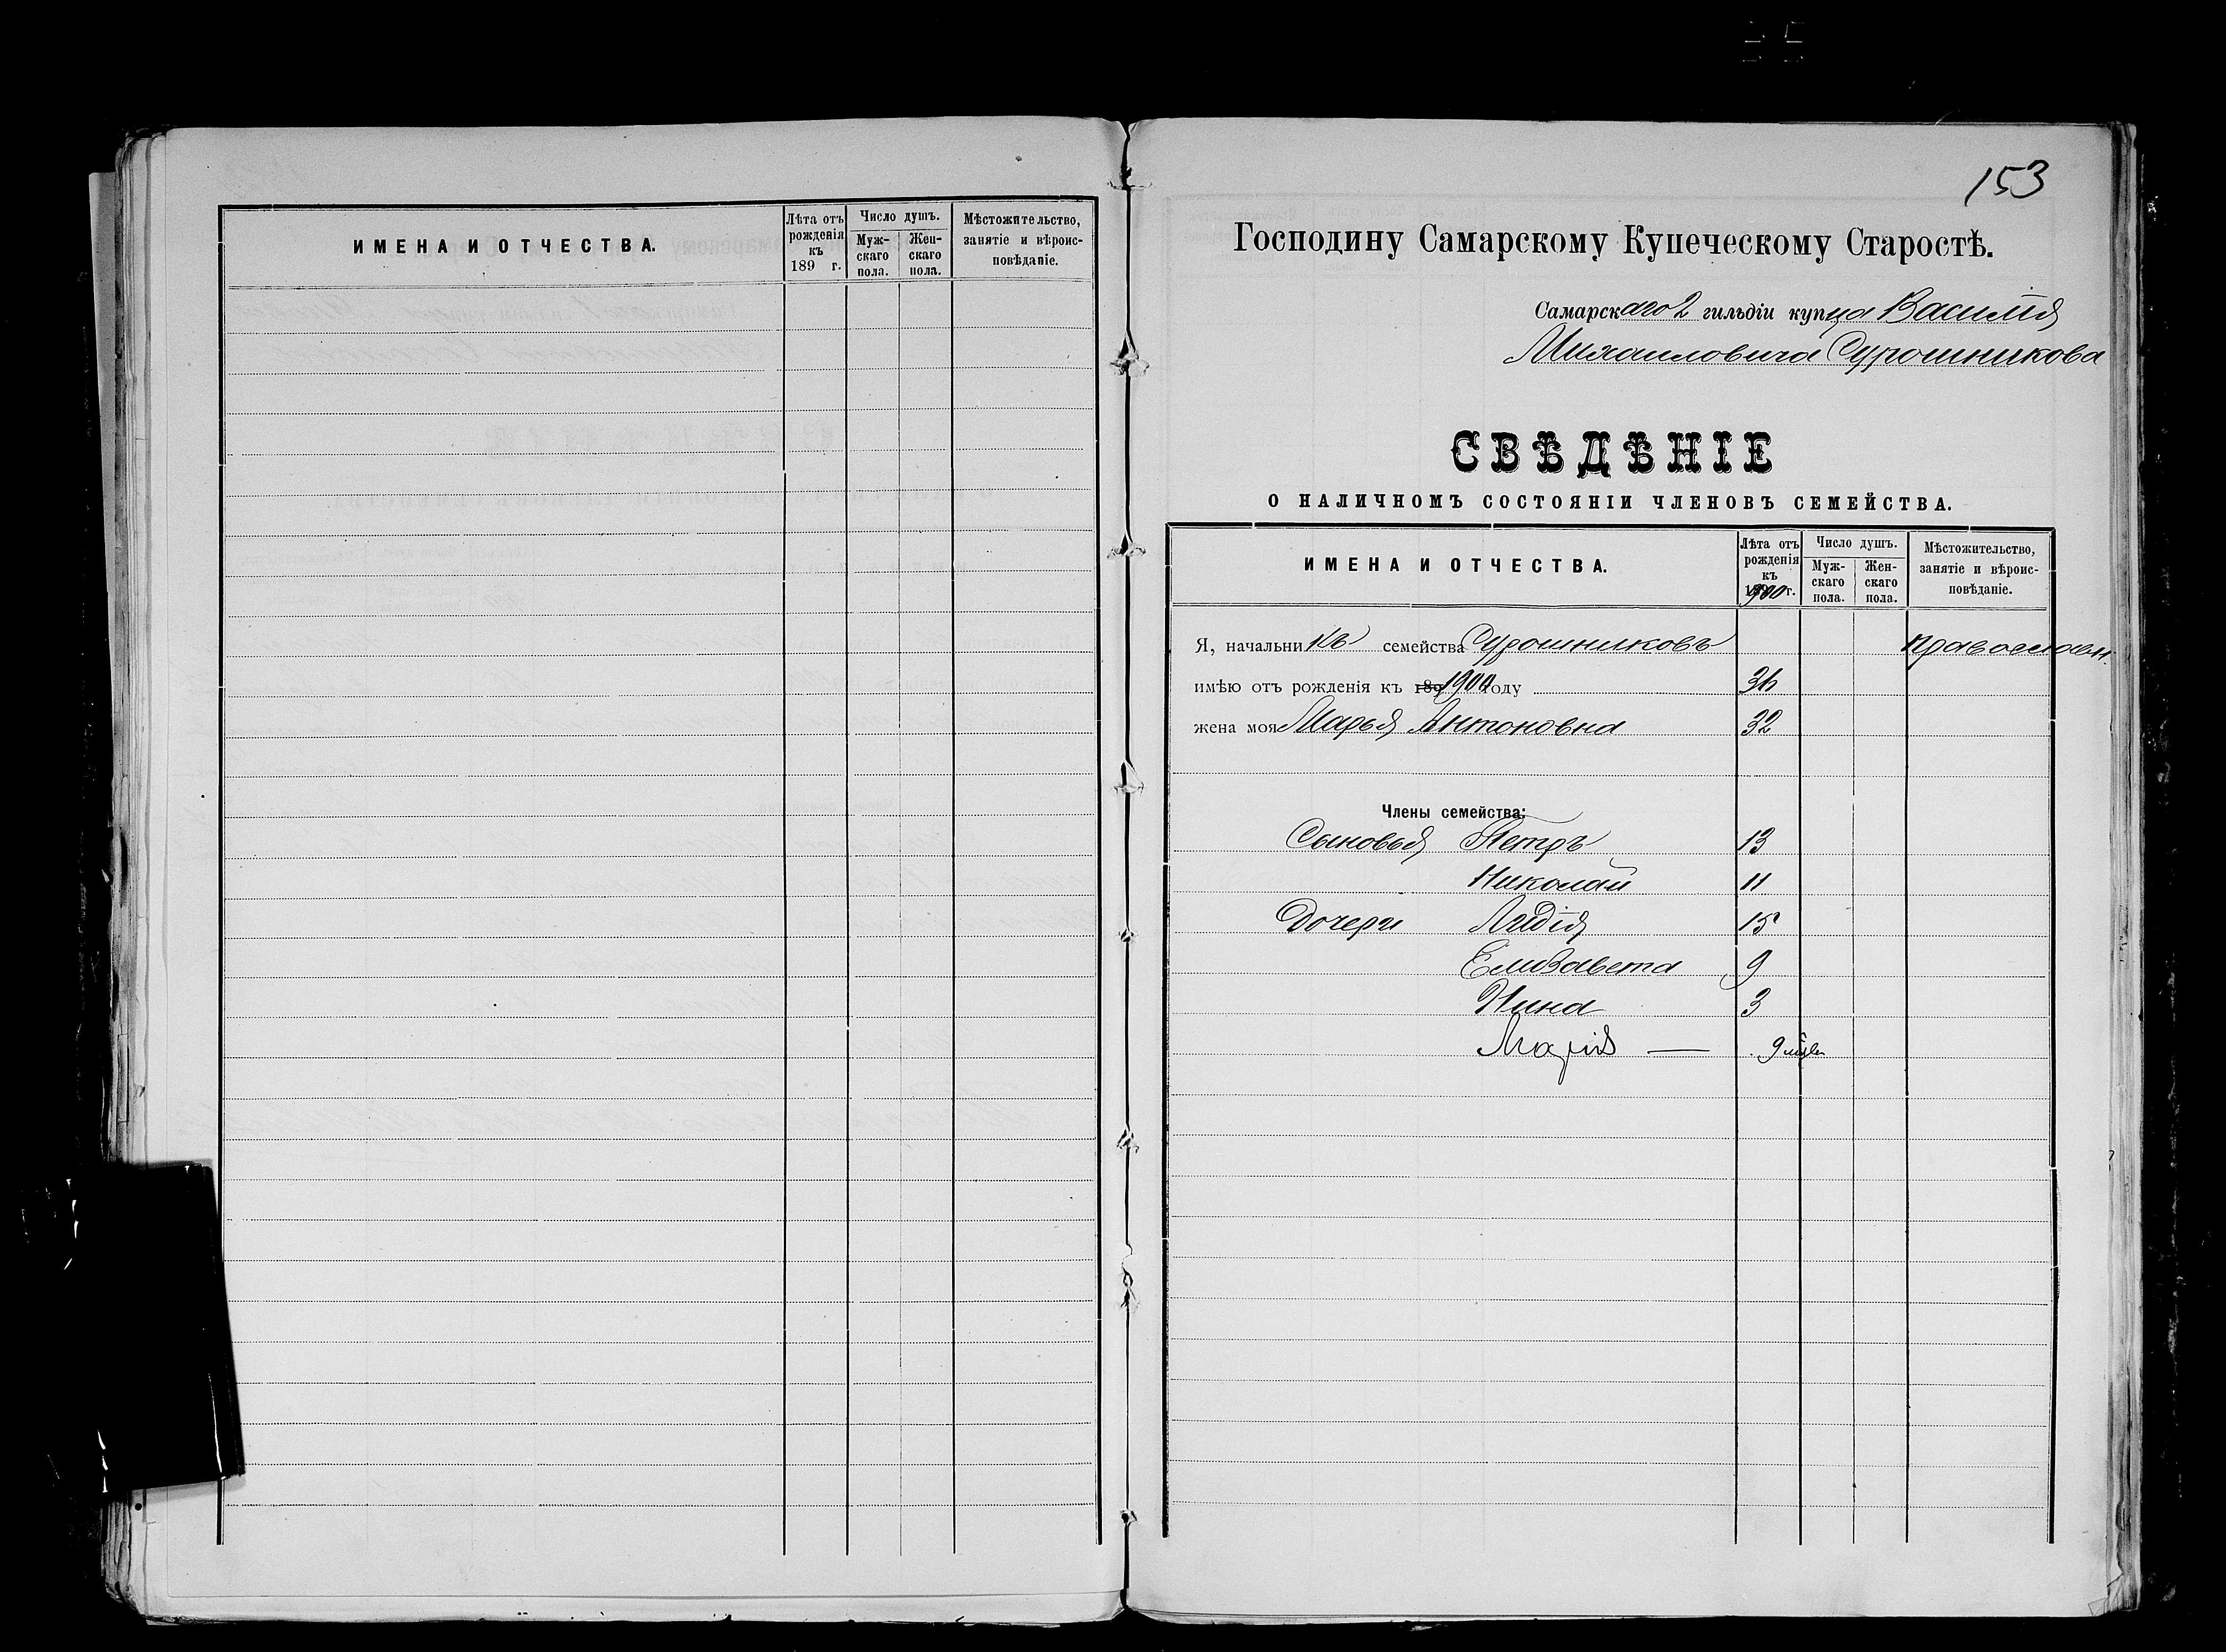 ИМЕНА И ОТЧЕСТВА.
Лѣта отъ рожденія къ 189 г.
Число душъ.
Мужскаго пола.
Женскаго пола.
Мѣстожительство, занятіе и вѣроисповѣданіе.
153
Господину Самарскому Купеческому Старостѣ.
Самарскаго 2 гильдіи купца Василія
Михаиловича Сурошникова
СВѢДѢНІЕ
О НАЛИЧНОМЪ СОСТОЯНІИ ЧЛЕНОВЪ СЕМЕЙСТВА.
ИМЕНА И ОТЧЕСТВА.
Лѣта отъ рожденія къ 1900 г.
Число душъ.
Мужскаго пола.
Женскаго пола.
Мѣстожительство, занятіе и вѣроисповѣданіе.
Я, начальникъ семейства Сурошниковъ православн.
имѣю отъ рожденія къ 189 1900 году
жена моя Марья Антоновна 32
Члены семейства:
Сыновья Петръ 13
Николай 11
Дочери Лидія 15
Елизавета 9
Нина 3
Марія — 9